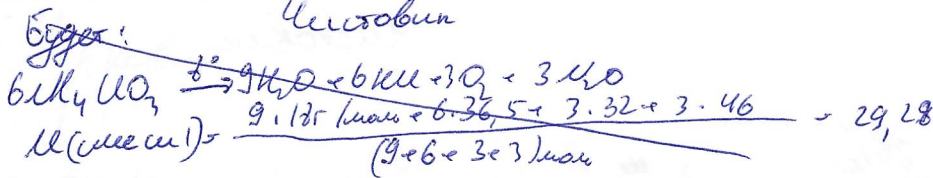 Чистовик
Будет:
6NH₄ClO₃ t° → 9H₂O + 6HCl + 3O₂ + 3N₂O
M(смеси) = 9·18г/моль + 6·36,5 + 3·32 + 3·46 = 29,28
(9+6+3+3)моль